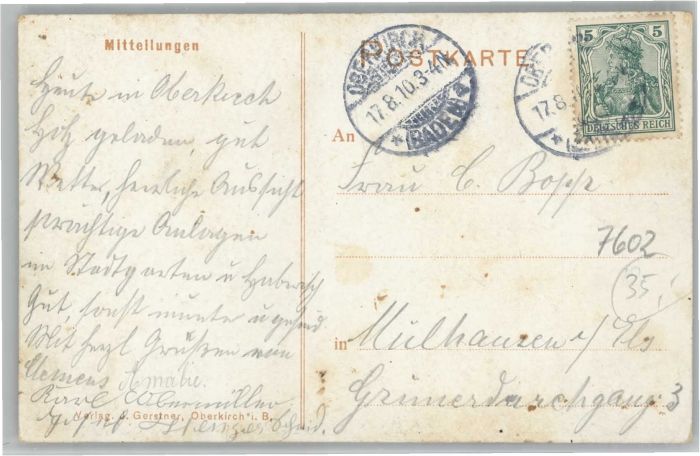 Mitteilungen
Heute in Oberkirch
Holz geladen, gut
Wetter, herrliche Aussicht
prächtige Anlagen
im Stadtgarten u
Gut, sonst munter u gesund
Mit herzl Grüßen von
Clemens Amalie.
Karl
Verlag. J. Gerstner, Oberkirch i. B.
POSTKARTE
OBERKIRCH
17.8.10.3-4N
* (BADEN) *
OBER
17.8
5 5
DEUTSCHES REICH
An
Frau C. Bopp
7602
35,-
in
Mülhausen i/Els
Grünerdurchgang 3